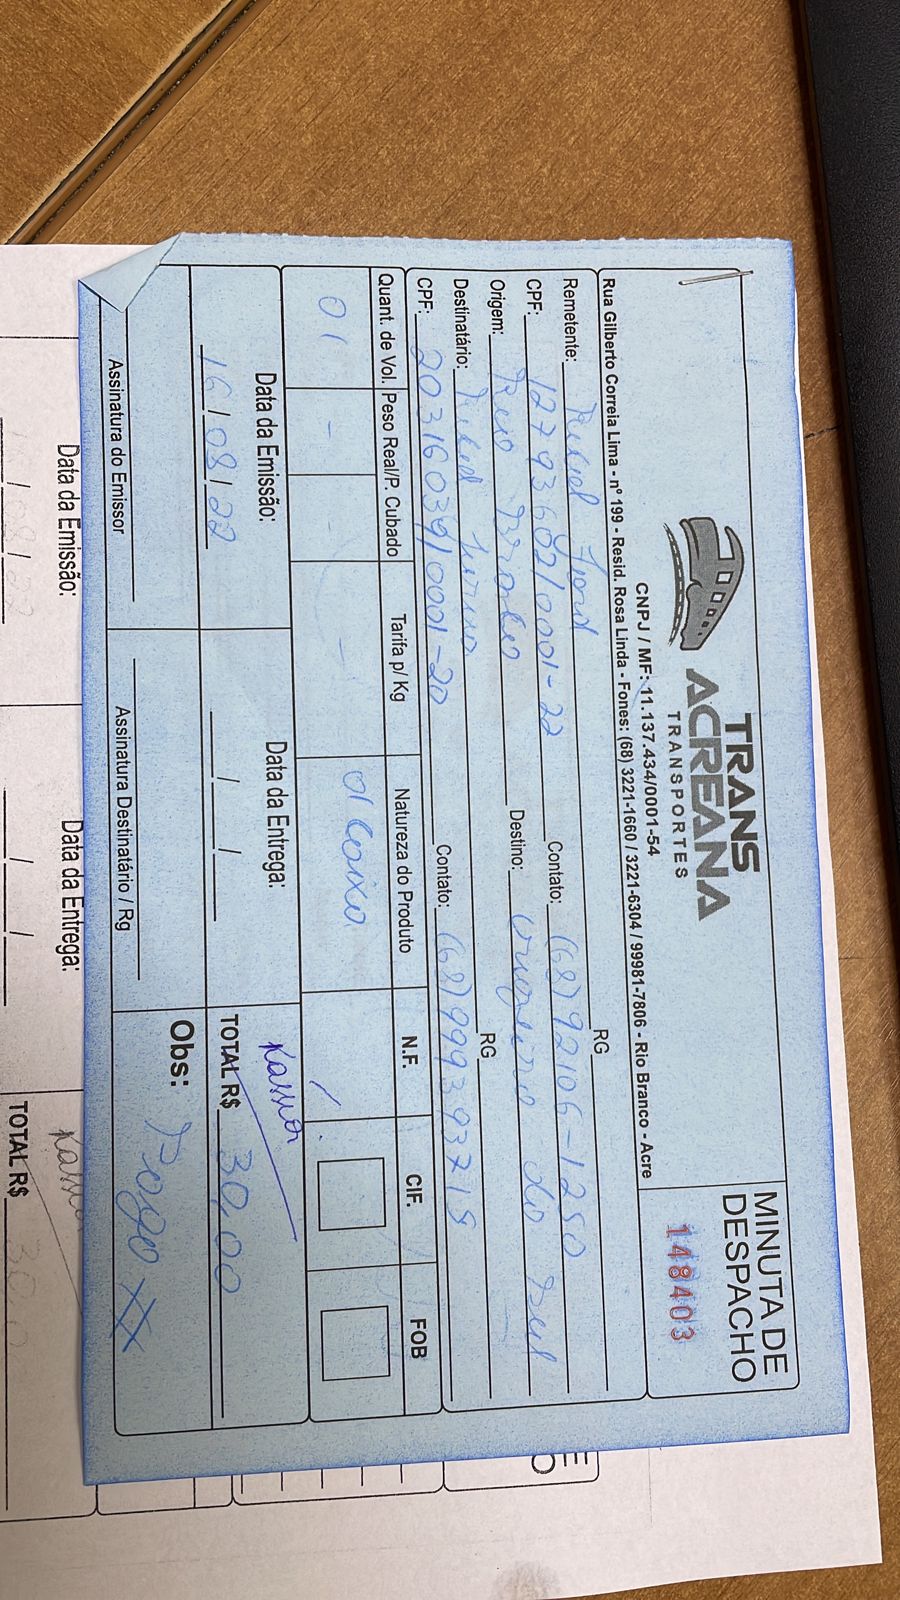 TRANS
ACREANA
TRANSPORTES
CNPJ / MF: 11.137.434/0001-54
Rua Gilberto Correia Lima - nº 199 - Resid. Rosa Linda - Fones: (68) 3221-1660 / 3221-6304 / 99981-7806 - Rio Branco - Acre
MINUTA DE
DESPACHO
148403
Remetente: RG
CPF: 12793602/0001-22 Contato: (68) 92106-1250
Origem: Rio Branco Destino: Cruzeiro do Sul
Destinatário: RG
CPF: 20316039/0001-20 Contato: (68) 999393715
Quant. de Vol. Peso Real/P. Cubado Tarifa p/ Kg Natureza do Produto N.F. CIF. FOB
01 - - - 01 Caixa
Data da Emissão: Data da Entrega:
16/08/22 / / TOTAL R$ 30,00
Assinatura do Emissor Assinatura Destinatário / Rg Obs: Pago
Data da Emissão: Data da Entrega:
TOTAL R$